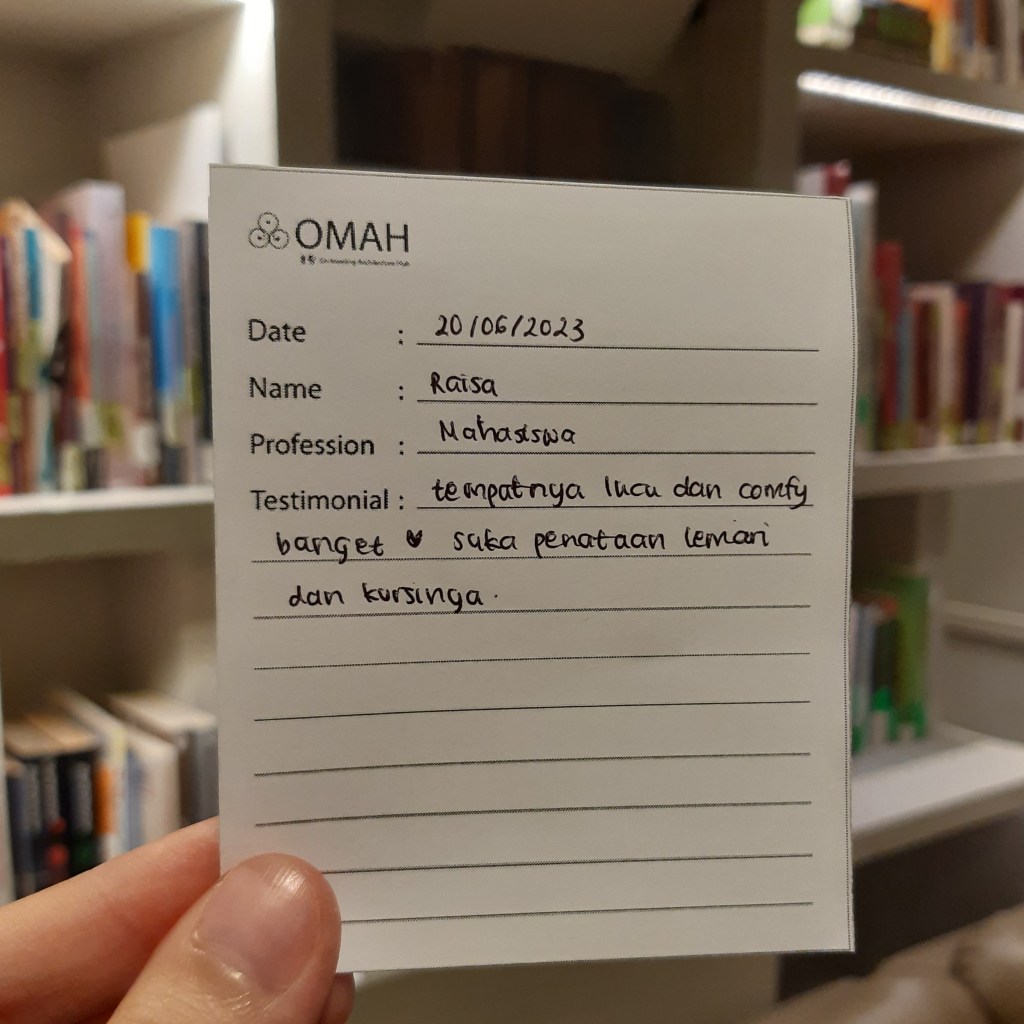 OMAH
Date : 20/06/2023
Name : Raisa
Profession : Mahasiswa
Testimonial : tempatnya lucu dan comfy
banget ♥ suka penataan lemari
dan kursinga.